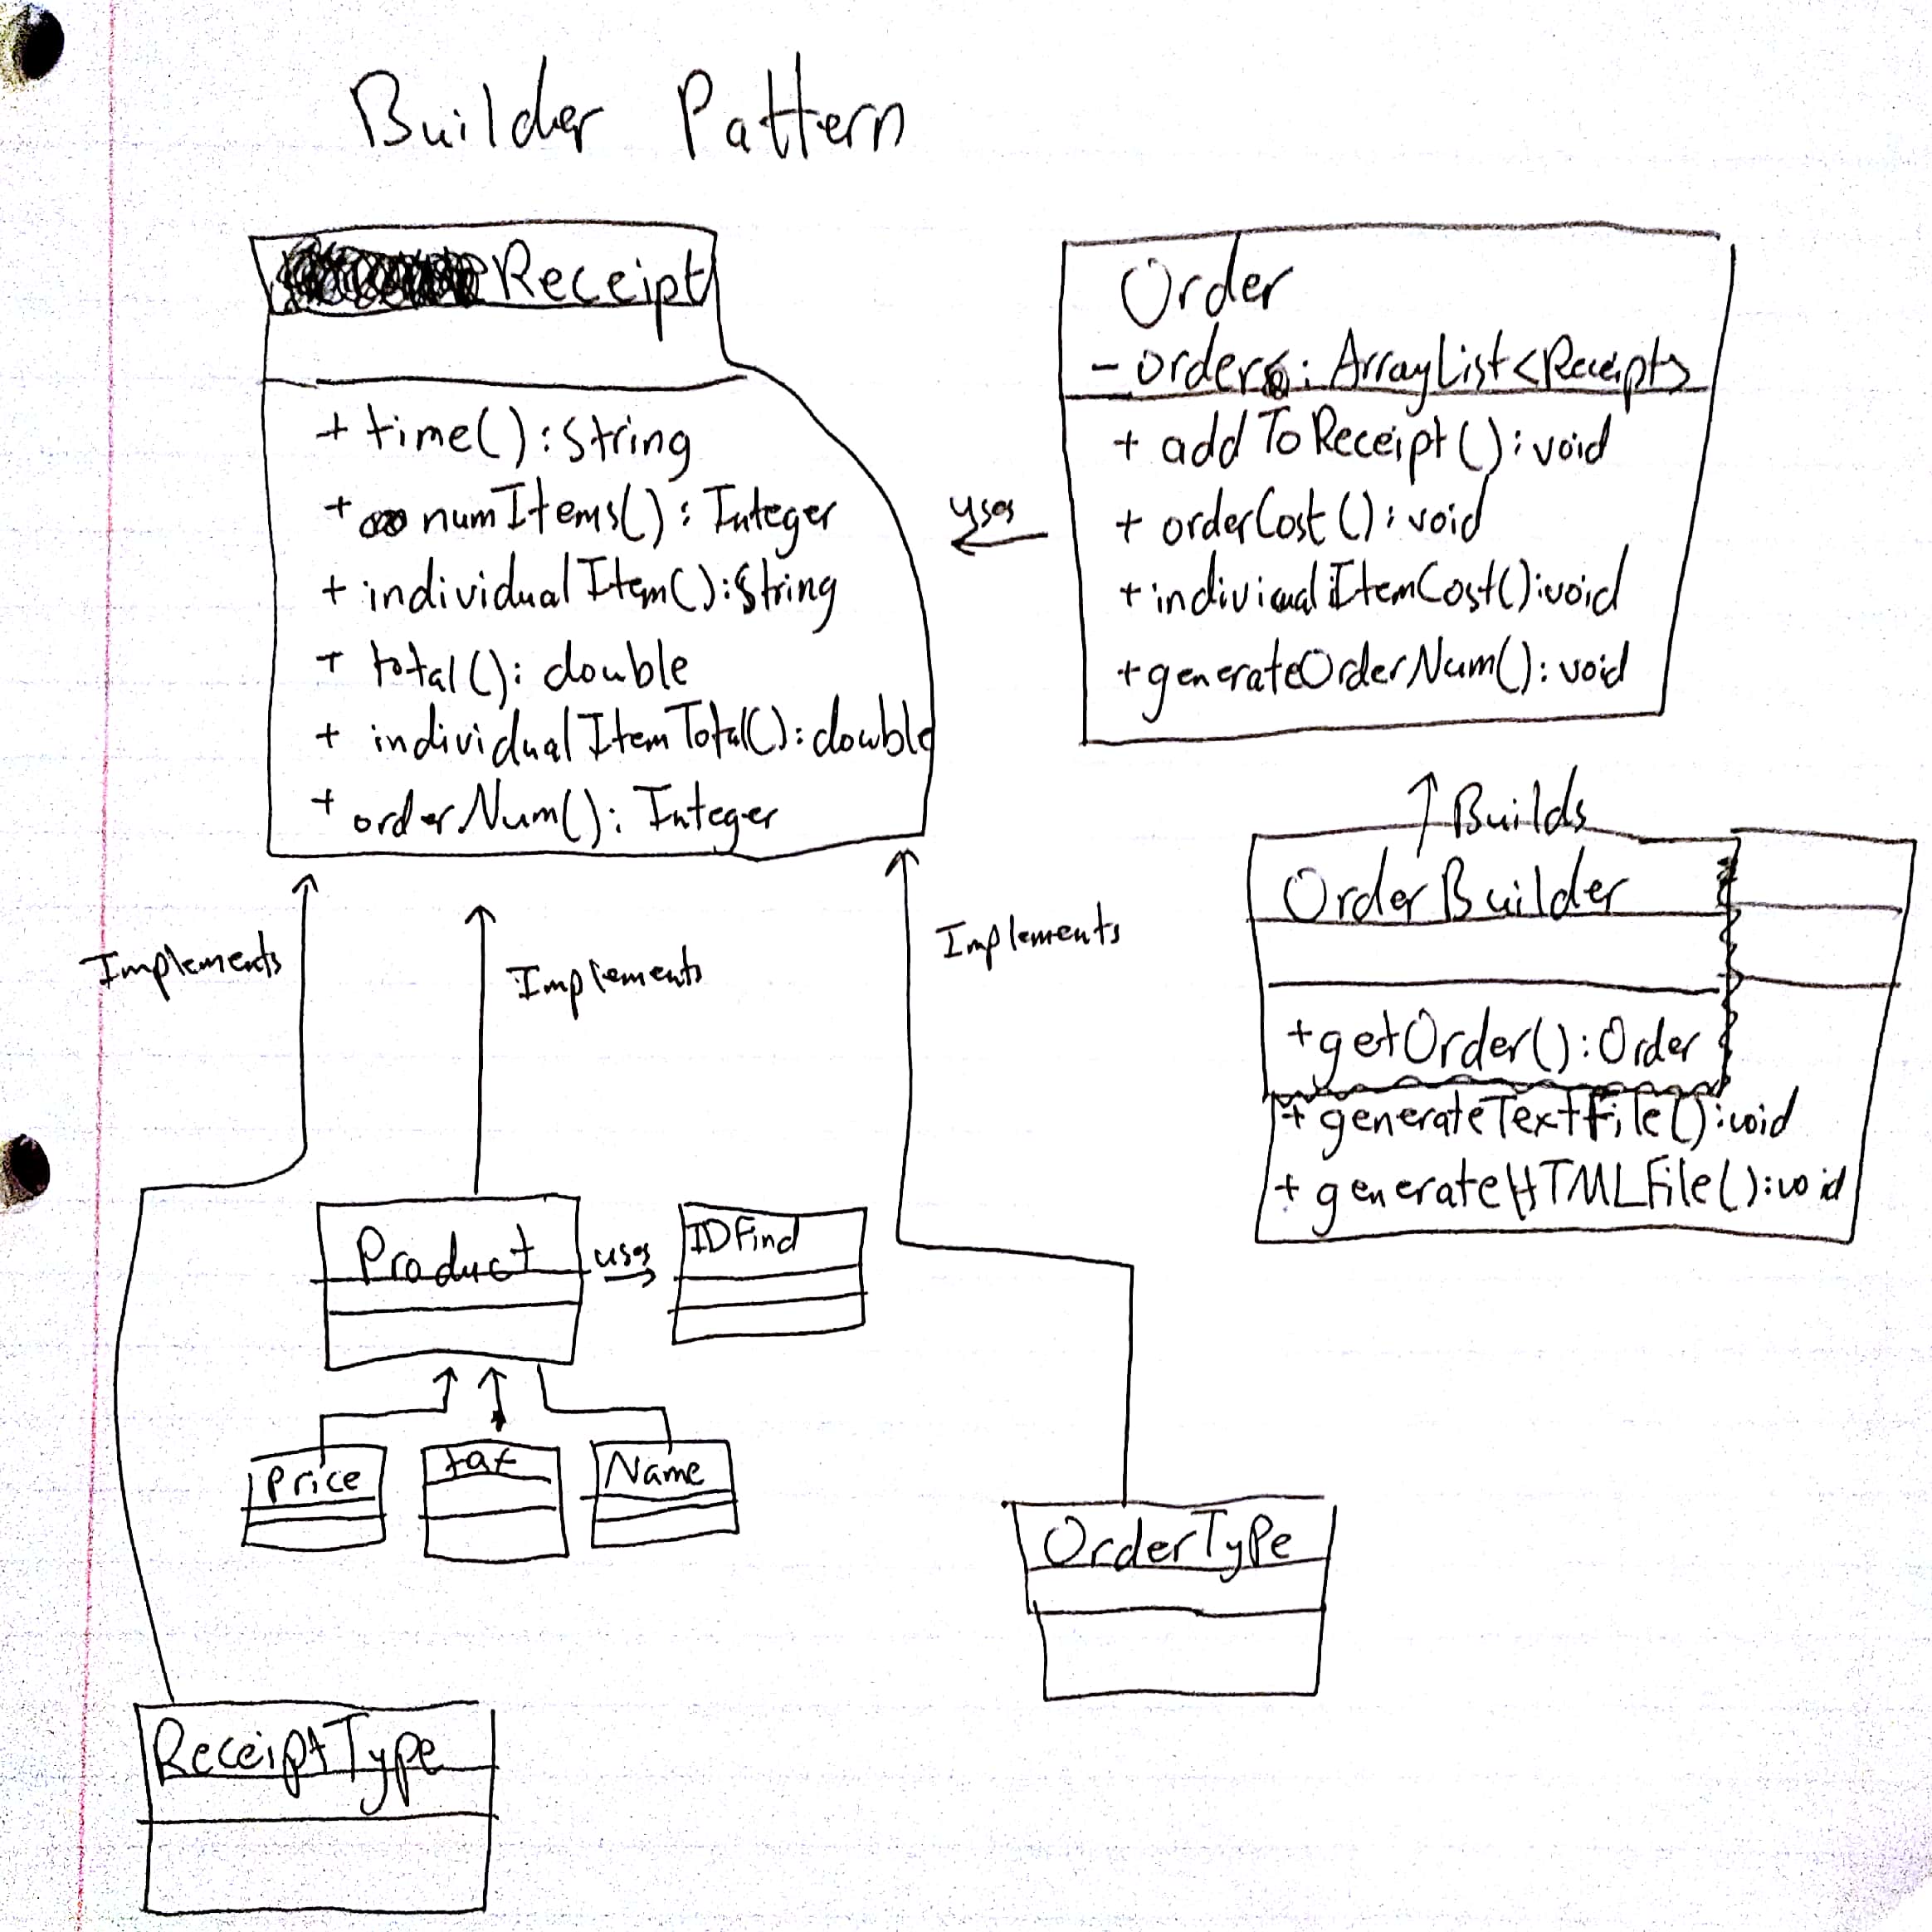 Builder Pattern
Receipt
+ time():String
+ numItems(): Integer
+ individualItem():String
+ total(): double
+ individualItemTotal():double
+ orderNum(): Integer
uses
Order
- orders: ArrayList<Receipt>
+ addToReceipt():void
+ orderCost():void
+ individualItemCost():void
+generateOrderNum():void
Builds
OrderBuilder
+getOrder():Order
+ generateTextFile():void
+ generateHTMLFile():void
Implements
Implements
Implements
Product
uses
IDFind
Price
Name
OrderType
ReceiptType